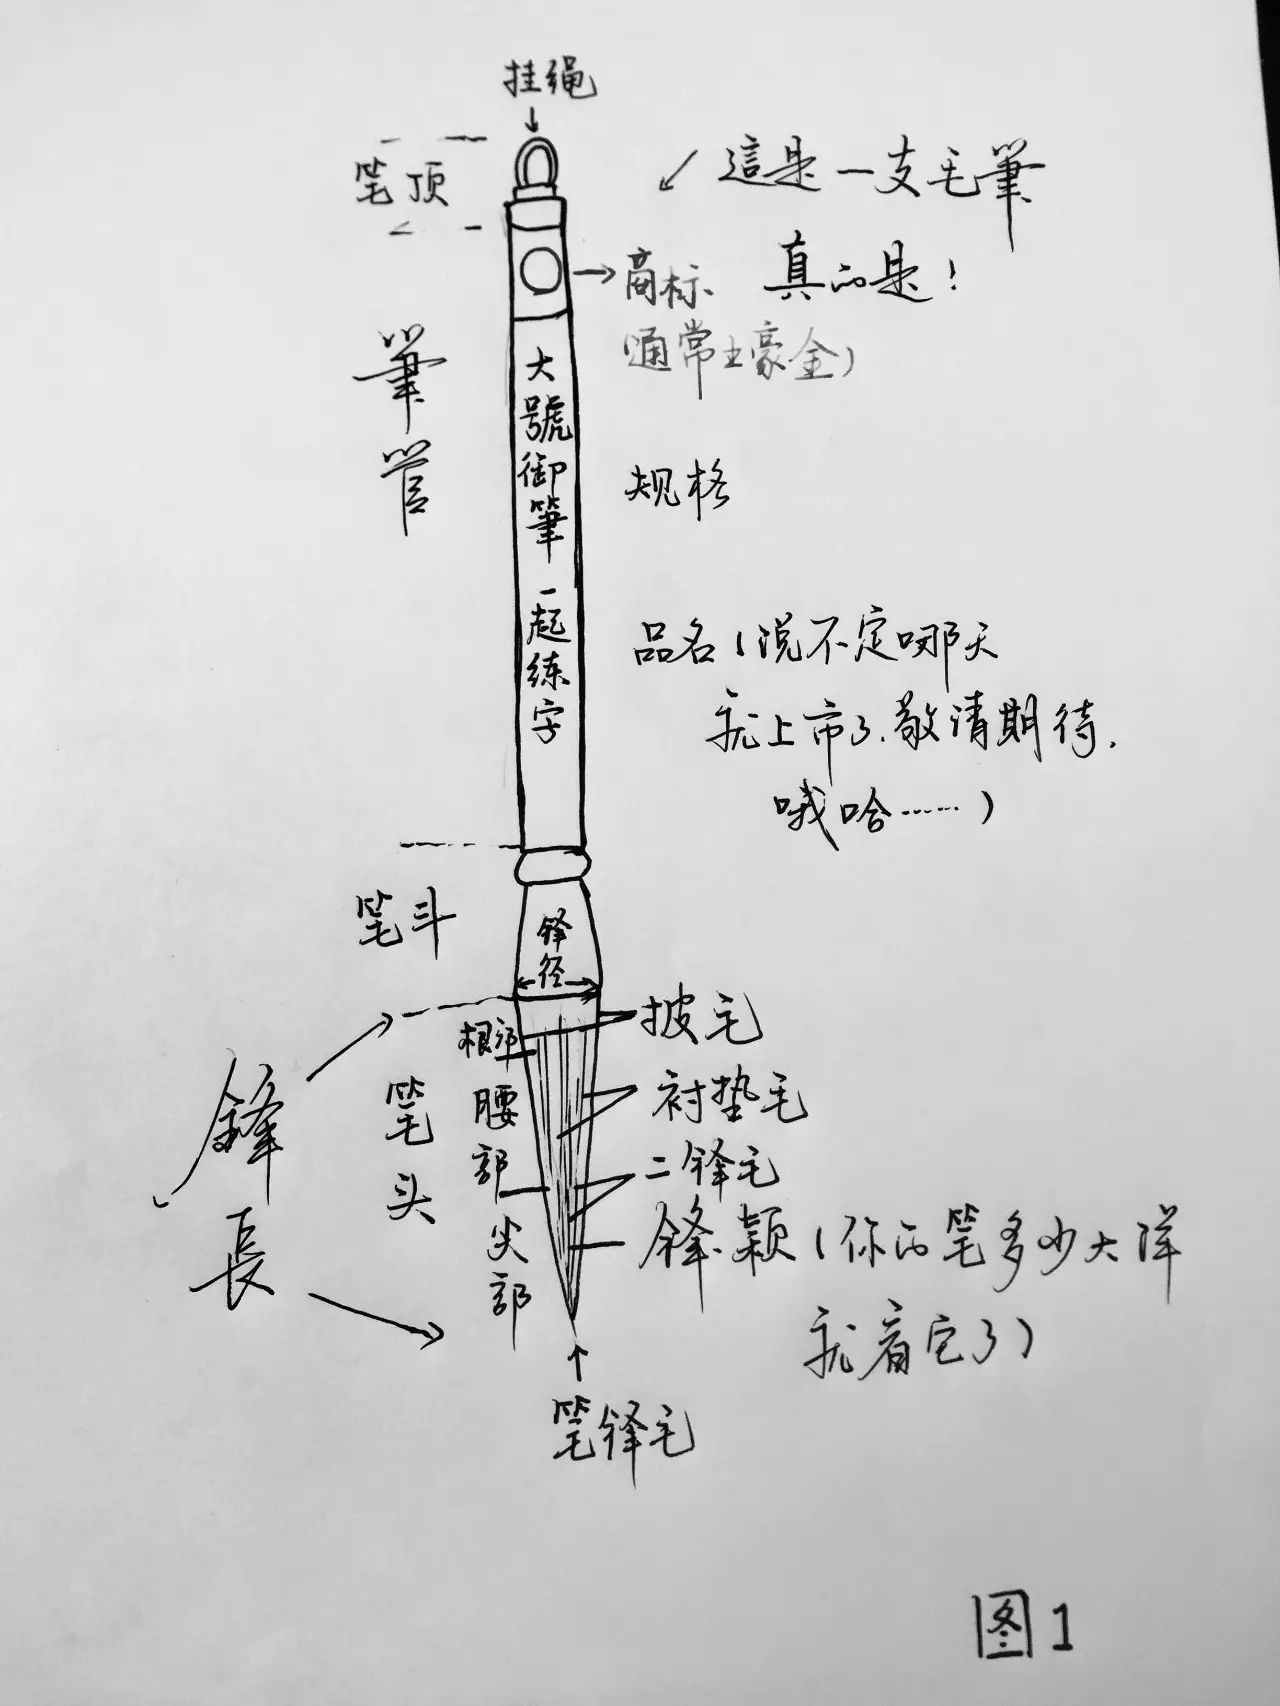 挂绳
笔顶
這是一支毛筆
真的是！
商标
（通常土豪金）
筆管
大號御筆 一起练字
规格
品名（说不定哪天
就上市了.敬请期待.
哦哈……）
笔斗
锋径
鋒長
笔头
根部
腰部
尖部
披毛
衬垫毛
二锋毛
锋颖（你的笔多少大洋
就看它了）
笔锋毛
图1